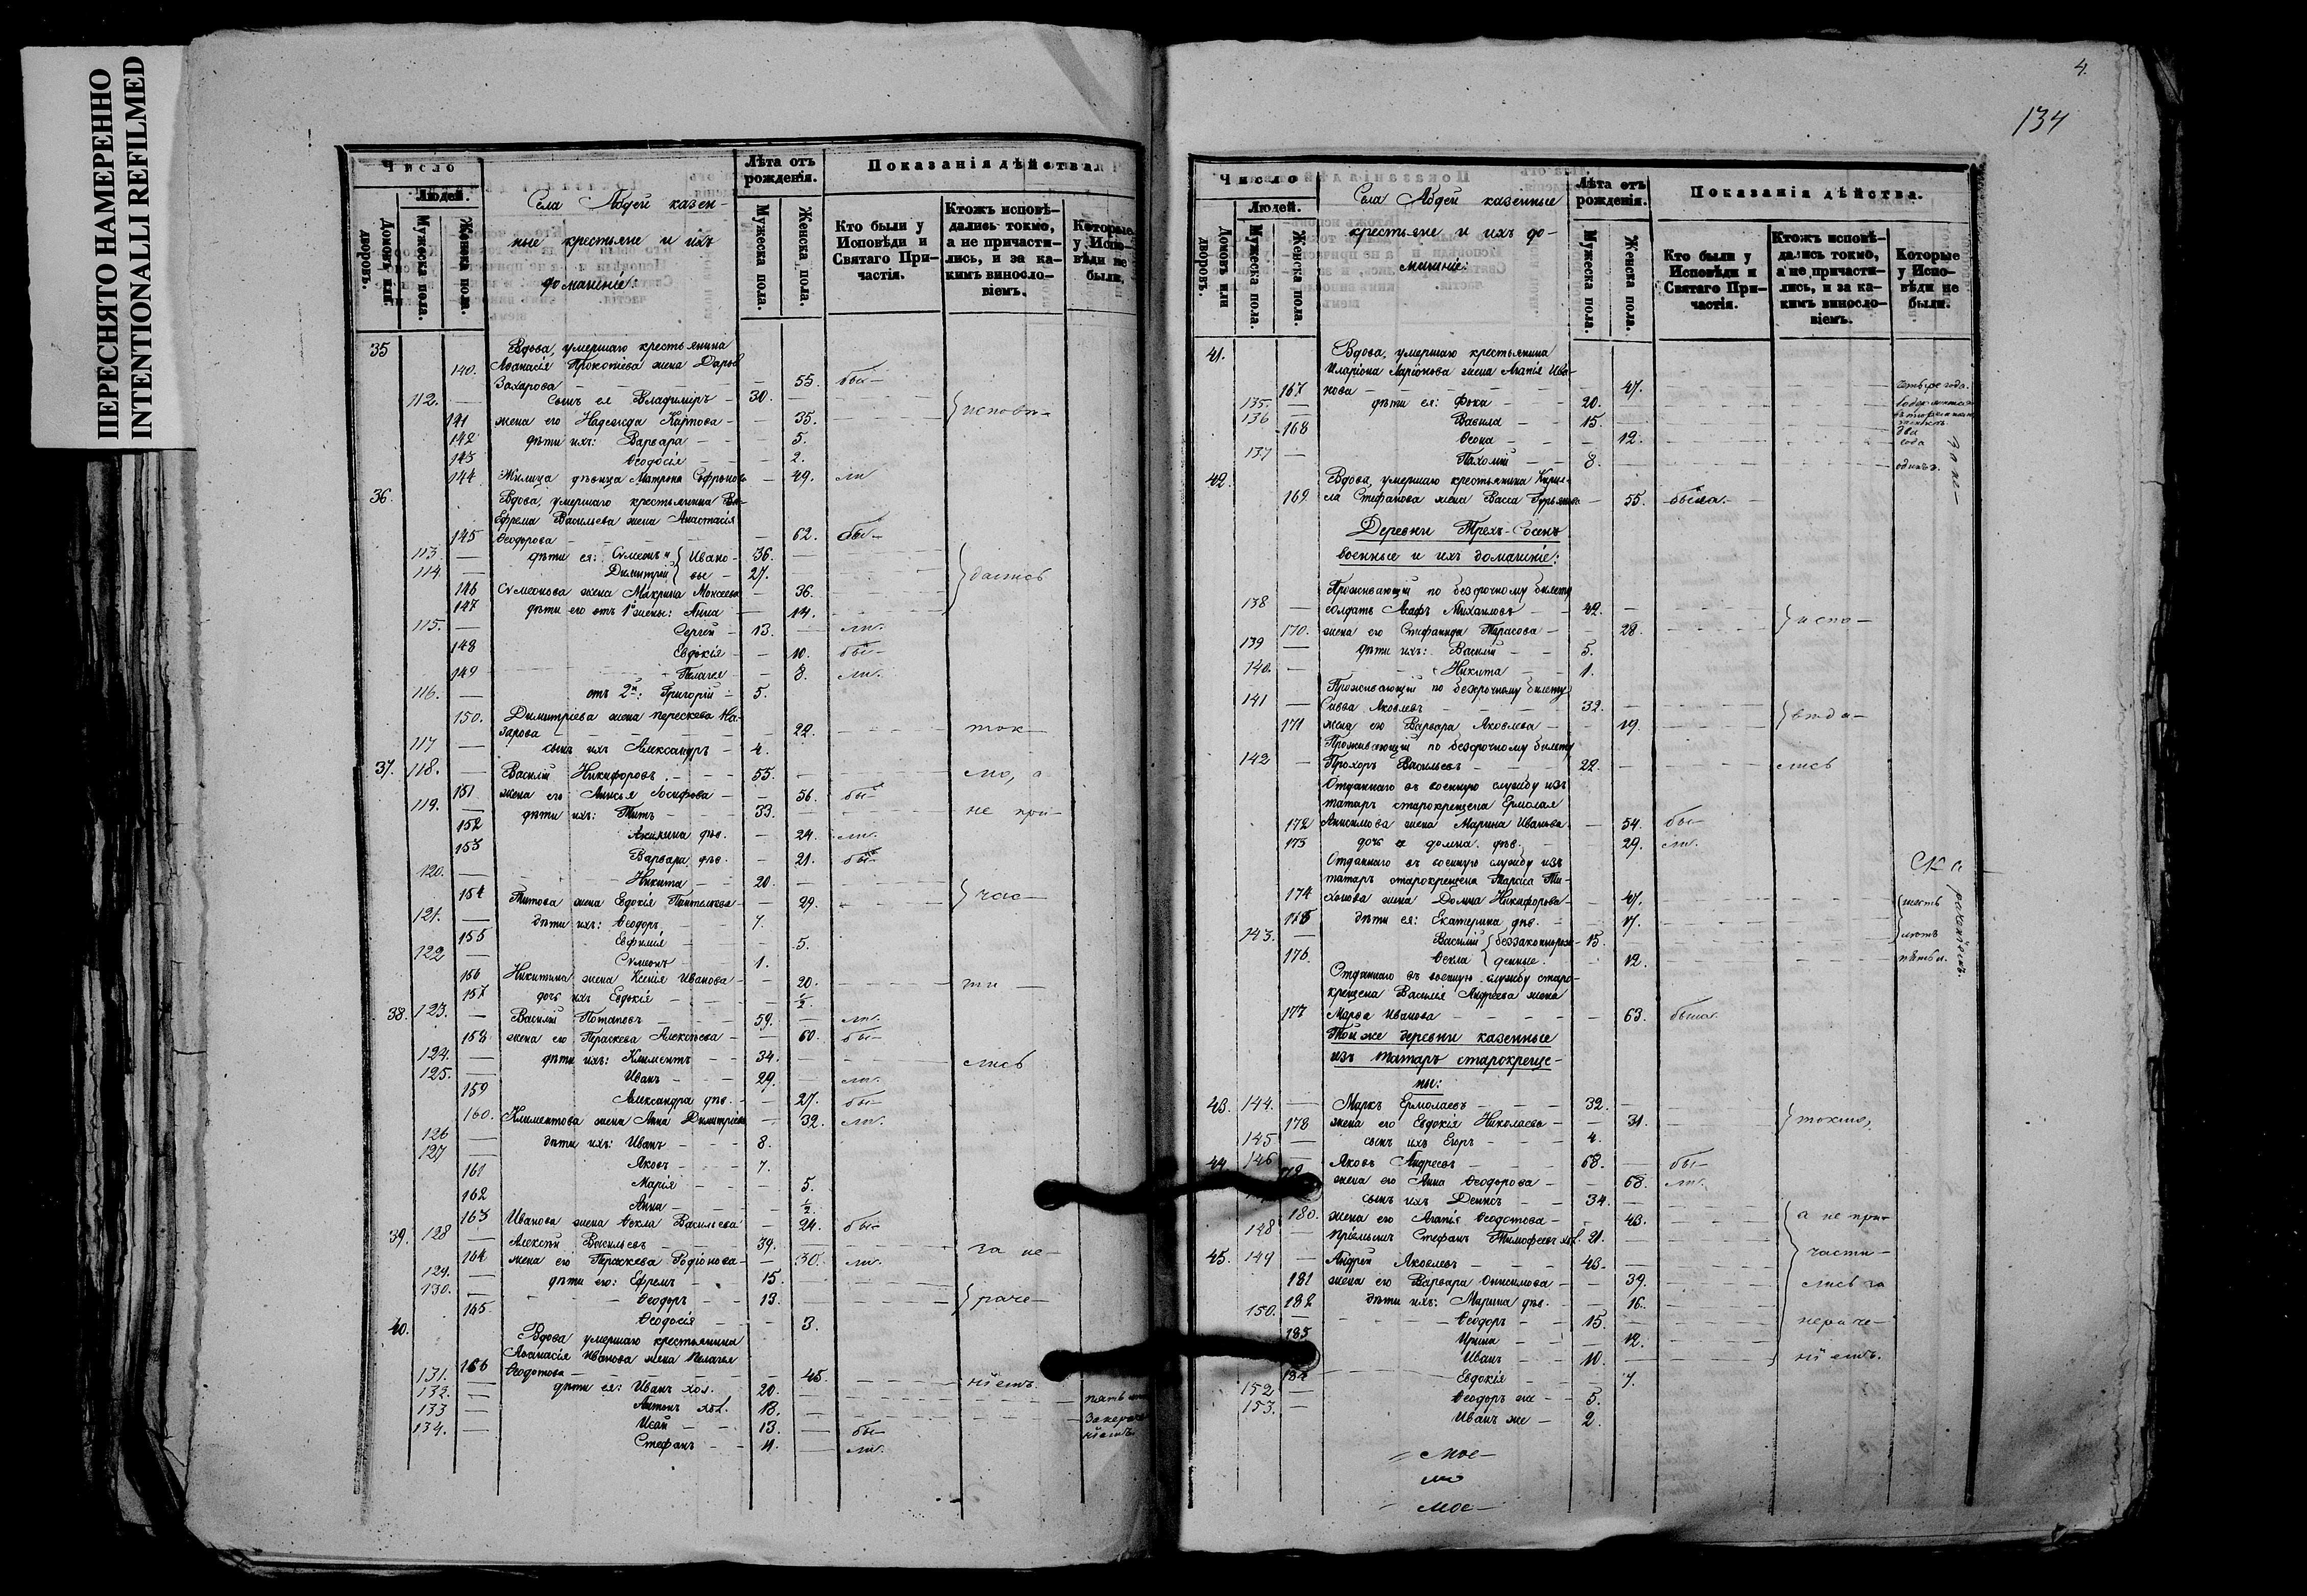 ПЕРЕСНЯТО НАМЕРЕННО
INTENTIONALLI REFILMED
Число
Людей.
Домовъ или дворовъ.
Мужеска пола.
Женска пола.
Села Абдей казен-
ные крестьяне и ихъ
домашніе:
Лѣта отъ рожденія.
Мужеска пола.
Женска пола.
Показанія дѣйства
Кто были у Исповѣди и Святаго Причастія.
Ктожъ исповѣдались токмо, а не причастились, и за какимъ винословіемъ.
Которые у Исповѣди не были.
35 Вдова, умершаго крестьянина
140. Аѳанасія Прокопіева жена Дарья
Захарова — 55. бы-
112. — сынъ ея Владиміръ — 30.
141 жена его Надежда Карпова — 35. исповѣ-
142 дѣти ихъ: Варвара — 5.
143 Ѳеодосія — 2.
144 Жилица дѣвица Матрона Софронова — 49. ли
36. Вдова, умершаго крестьянина
Ефрема Васильева жена Анастасія
145 Ѳеодорова — 62. бы-
113 — дѣти ея: Сѵмеонъ и Ивано- 36.
114. — Димитрій вы — 27. дались
146 Сѵмеонова жена Макрина Моисеева — 36.
147 дѣти его отъ 1й жены: Анна — 14.
115. — Сергей — 13. — ли.
148 Евдокія — 10. бы-
149 Пелагея — 8. ли.
116. — отъ 2й: Григорій — 5.
150. Димитріева жена Параскева На-
зарова — 22. ток-
117 — сынъ ихъ Александръ — 4.
37. 118. — Василій Никифоровъ — 55. — мо, а
151 жена его Анисья Іосифова — 56. бы-
119. — дѣти ихъ: Титъ — 33. не при-
152 Акилина дѣв. — 24. ли.
153 Варвара дѣв. — 21. бы-
120. — Никита — 20.
154 Титова жена Евдокія Пантелеева — 29. час-
121. — дѣти ихъ: Ѳеодоръ — 7.
155 Евфимія — 5.
122 — Сѵмеонъ — 1.
156 Никитина жена Ксенія Иванова — 20. ти-
157 дочь ихъ Евдокія — ½
38. 123. — Василій Потаповъ — 59. — ли.
158 жена его Параскева Алексѣева — 60. бы-
124. — дѣти ихъ: Климентъ — 34. лись
125. — Иванъ — 29. — ли.
159 Александра дѣв. — 27. бы-
160. Климентова жена Анна Димитріева — 32. ли.
126 — дѣти ихъ: Иванъ — 8.
127 — Яковъ — 7.
161 Марія — 5.
162 Анна — ½
163 Иванова жена Ѳекла Васильева — 24. бы-
39. 128 — Алексѣй Васильевъ — 39. за не-
164 жена его Параскева Родіонова — 30. ли.
129. — дѣти его: Ефремъ — 15.
130. — Ѳеодоръ — 13. раче-
165 Ѳеодосія — 3.
40. Вдова умершаго крестьянина
Аѳанасія Иванова жена Пелагея
166 Ѳеодотова — 45. ніемъ.
131. — дѣти ея: Иванъ хол. 20. пять
132. — Антонъ хол. 18. за нера
133 — Исай — 13. — бы- ніемъ
134. — Стефанъ — 11. — ли.
4.
134
Число
Людей.
Домовъ или дворовъ.
Мужеска пола.
Женска пола.
Села Абдей казенные
крестьяне и ихъ до-
машніе:
Лѣта отъ рожденія.
Мужеска пола.
Женска пола.
Показанія дѣйства.
Кто были у Исповѣди и Святаго Причастія.
Ктожъ исповѣдались токмо, а не причастились, и за какимъ винословіемъ.
Которые у Исповѣди не были.
41. Вдова, умершаго крестьянина
Иларіона Ларіонова жена Агапія Ива-
167 нова — 47. четыре года.
135. — дѣти ея: Фока — 20.
136 — Вавила — 15.
168 Ѳеона — 12. два года
137 — Пахомій — 8. одинъ.
за не-
42. Вдова, умершаго крестьянина Кирил-
169 ла Стефанова жена Васса — 55. была.
Деревни Трехъ-Сосенъ
военные и ихъ домашніе:
Проживающій по безсрочному билету
138 — солдатъ Асафъ Михаиловъ — 42.
170. жена его Стефанида Тарасова — 28. испо-
139 — дѣти ихъ: Василій — 5.
140. — Никита — 1.
Проживающій по безсрочному билету
141 — Савва Яковлевъ — 32.
171 жена его Варвара Яковлева — 19. вѣда-
Проживающій по безсрочному билету
142 — Прохоръ Васильевъ — 22. лись
Отданнаго въ военную службу изъ
татаръ старокрещена Ермолая
172 Анисимова жена Марина Иванова — 54. бы-
173 дочь ея Домна дѣв. — 29. ли.
Отданнаго въ военную службу изъ
татаръ старокрещена Тараса Ти-
174 хонова жена Домна Никифорова — 47. шесть
175 дѣти ея: Екатерина дѣв. — 17. лѣтъ
143. — Василій беззаконнорож- 15.
176 Ѳекла денные. — 12. пять л.
Отданнаго въ военную службу старо-
крещена Василія Андреева жена
177 Марѳа Иванова — 63. была.
Той же деревни казенные
изъ татаръ старокреще-
ны:
43. 144. — Маркъ Ермолаевъ — 32.
178 жена его Евдокія Николаева — 31. токмо,
145 — сынъ ихъ Егоръ — 4.
44. 146 — Яковъ Андреевъ — 68. — бы-
179 жена его Анна Ѳеодорова — 68. ли.
сынъ ихъ Денисъ — 34.
180. жена его Агапія Ѳеодотова — 43. а не при-
148 — пріемышъ Стефанъ Тимофеевъ хол. 21.
45. 149 — Андрей Яковлевъ — 43. части-
181 жена его Варвара Онисимова — 39. лись за
182 дѣти ихъ: Марина дѣв. — 16.
150. — Ѳеодоръ — 15. нераче-
183 Ирина — 12.
Иванъ — 10. ніемъ.
184 Евдокія — 7.
152 — Ѳеодоръ же — 5.
153. — Иванъ же — 2.